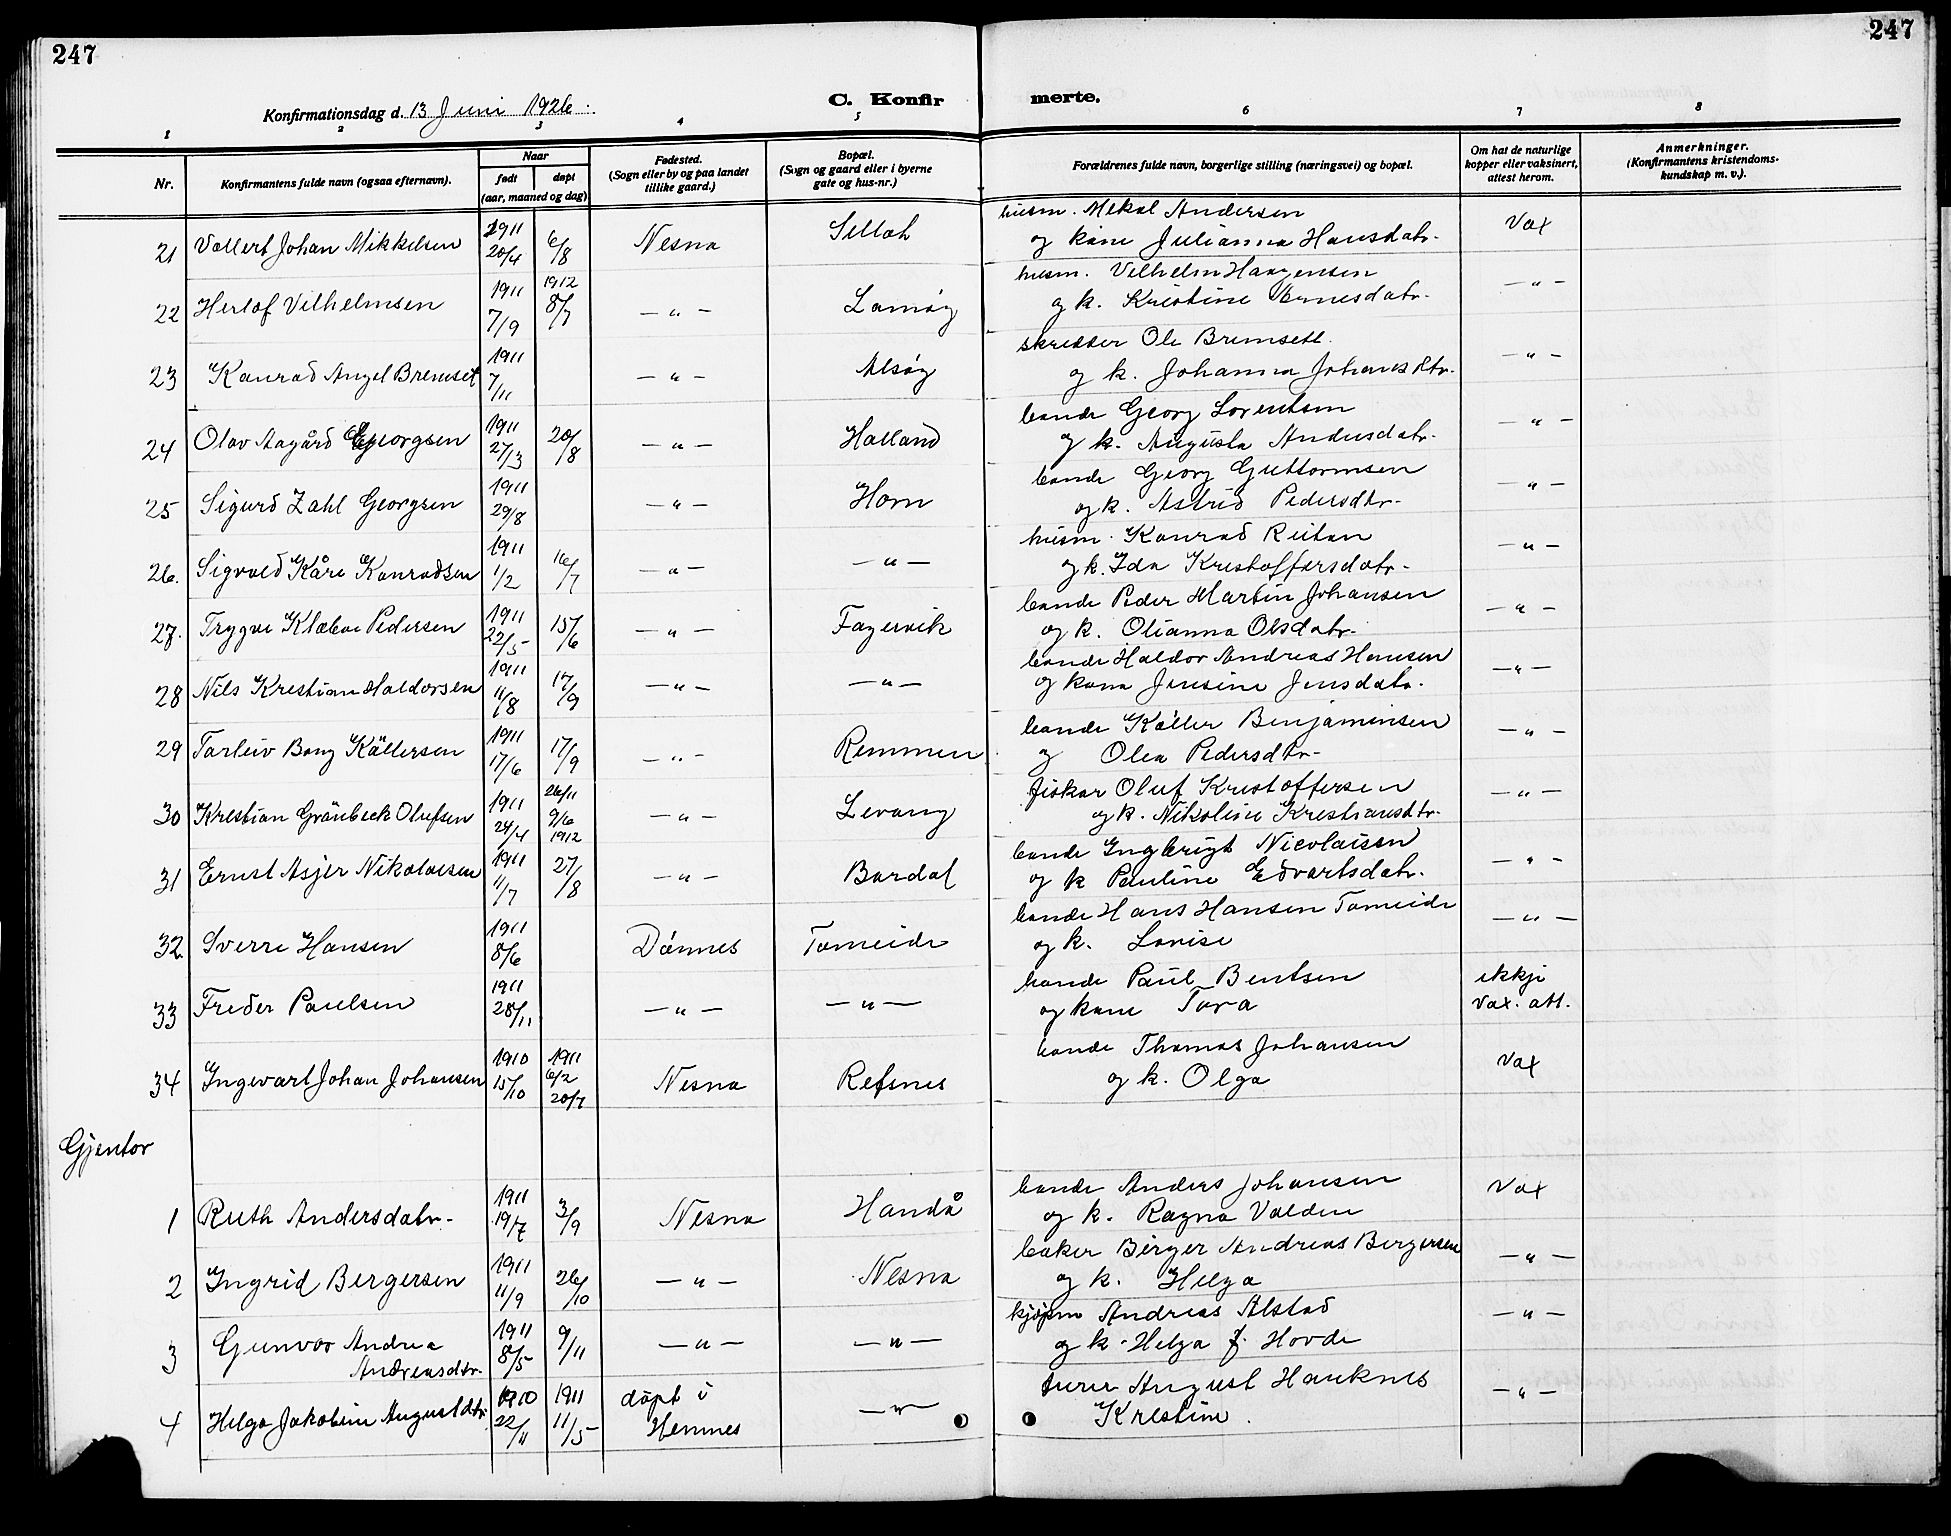 247
247
Konfirmationsdag d. 13 Juni 1926.
C. Konfir merte.
1 2 3 4 5 6 7 8
Nr.
Konfirmantens fulde navn (ogsaa efternavn).
Naar
født døpt
(aar, maaned og dag)
Fødested.
(Sogn eller by og paa landet
tillike gaard.)
Bopæl.
(Sogn og gaard eller i byerne
gate og hus-nr.)
Forældrenes fulde navn, borgerlige stilling (næringsvei) og bopæl.
Om hat de naturlige
kopper eller vaksinert,
attest herom.
Anmerkninger.
(Konfirmantens kristendoms-
kundskap m. v.).
21 Vallert Johan Mikkelsen 1911 20/4 6/8 Nesna husm. Mikal Andersen Vax
og kone Julianna Hansdatr.
22 Herlof Vilhelmsen 1911 7/9 1912 8/7 — " — Lamøy husm. Vilhelm — " —
og k. Kristine Arnesdatr.
23 Konrad Angel Bremset 1911 7/11 — " — Alsøy skredder Ole Bremsett — " —
og k. Johanna Johansdtr.
24 Olav Aagård Georgsen 1911 27/13 20/8 — " — Halland bonde Georg Lorentsen — " —
og k. Augusta Andersdatr.
25 Sigurd Zahl Georgsen 1911 29/8 — " — Horn bonde Georg Guttormsen — " —
og k. Astrid Pedersdtr.
26. Sigvald Kåre Konradsen 1911 1/2 16/7 — " — — " — husm. Konrad Reitan — " —
og k. Ida Kristoffersdatr.
27. Trygve Klæboe Pedersen 1911 22/5 15/6 — " — Fagervik bonde Peder Martin Johansen — " —
og k. Olianna Olsdatr.
28 Nils Kristian Haldorsen 1911 11/8 17/9 — " — — " — bonde Haldor Andreas Hansen — " —
og kona Jensine Jensdatr.
29 Torleiv Bang Källersen 1911 17/6 17/9 — " — Remmen bonde Käller Benjaminsen — " —
og Olea Pedersdtr.
30 Kristian Grönbeck Olufsen 1911 24/4 26/11 9/6 1912 — " — Levang fiskar Oluf Kristoffersen — " —
og k. Nikoline Kristiansdtr.
31 Ernst Asjer Nikolaisen 1911 11/7 27/8 — " — Bardal bonde Ingbrigt Nicolaisen — " —
og k Pauline Edvartsdatr.
32. Sverre Hansen 1911 8/6 Dønnes Tomeide bonde Hans Hansen Tomeide — " —
og k. Lovise
33 Freder Paulsen 1911 28/11 — " — — " — bonde Paul Bentsen ikkje
og kone Tora Vax. att.
34 Ingvart Johan Johansen 1910 15/10 1911 6/2 20/7 Nesna Refsnes bonde Thomas Johansen Vax
og k. Olga
Gjentor
1 Ruth Andersdatr. 1911 19/7 3/9 Nesna Handå bonde Anders Johansen Vax
og k. Ragna Valden
2 Ingrid Bergersen 1911 11/9 26/10 — " — Nesna baker Birger Andreas Bergersen — " —
og k. Helga
3 Gunvor Andrea 1911 8/5 9/11 — " — — " — kjøpm Andreas Alstad — " —
Andreasdtr. og k. Helga f. Hovde
4 Helga Jakobine Augustdtr. 1910 22/11 1911 11/5 døpt i — " — August Hauknes — " —
Hemnes Kristine.